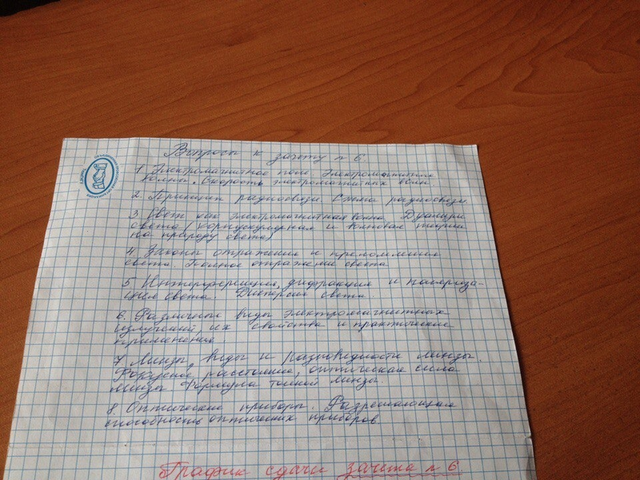 Вопросы к зачету № 6.
1. Электромагнитное поле. Электромагнитные
волны. Скорость электромагнитных волн
2. Принцип радиосвязи. Схема радиосвязи.
3. Свет как электромагнитная волна. Дуализм
света (корпускулярная и волновая теории
на природу света)
4. Законы отражения и преломления
света. Полное отражение света.
5. Интерференция, дифракция и поляриза-
ция света. Дисперсия света
6. Различные виды электромагнитных
излучений, их свойства и практические
применения.
7. Линзы, виды и разновидности линзы.
Фокусное расстояние, оптическая сила
линзы. Формула тонкой линзы
8. Оптические приборы. Разрешающая
способность оптических приборов
График сдачи зачета № 6.